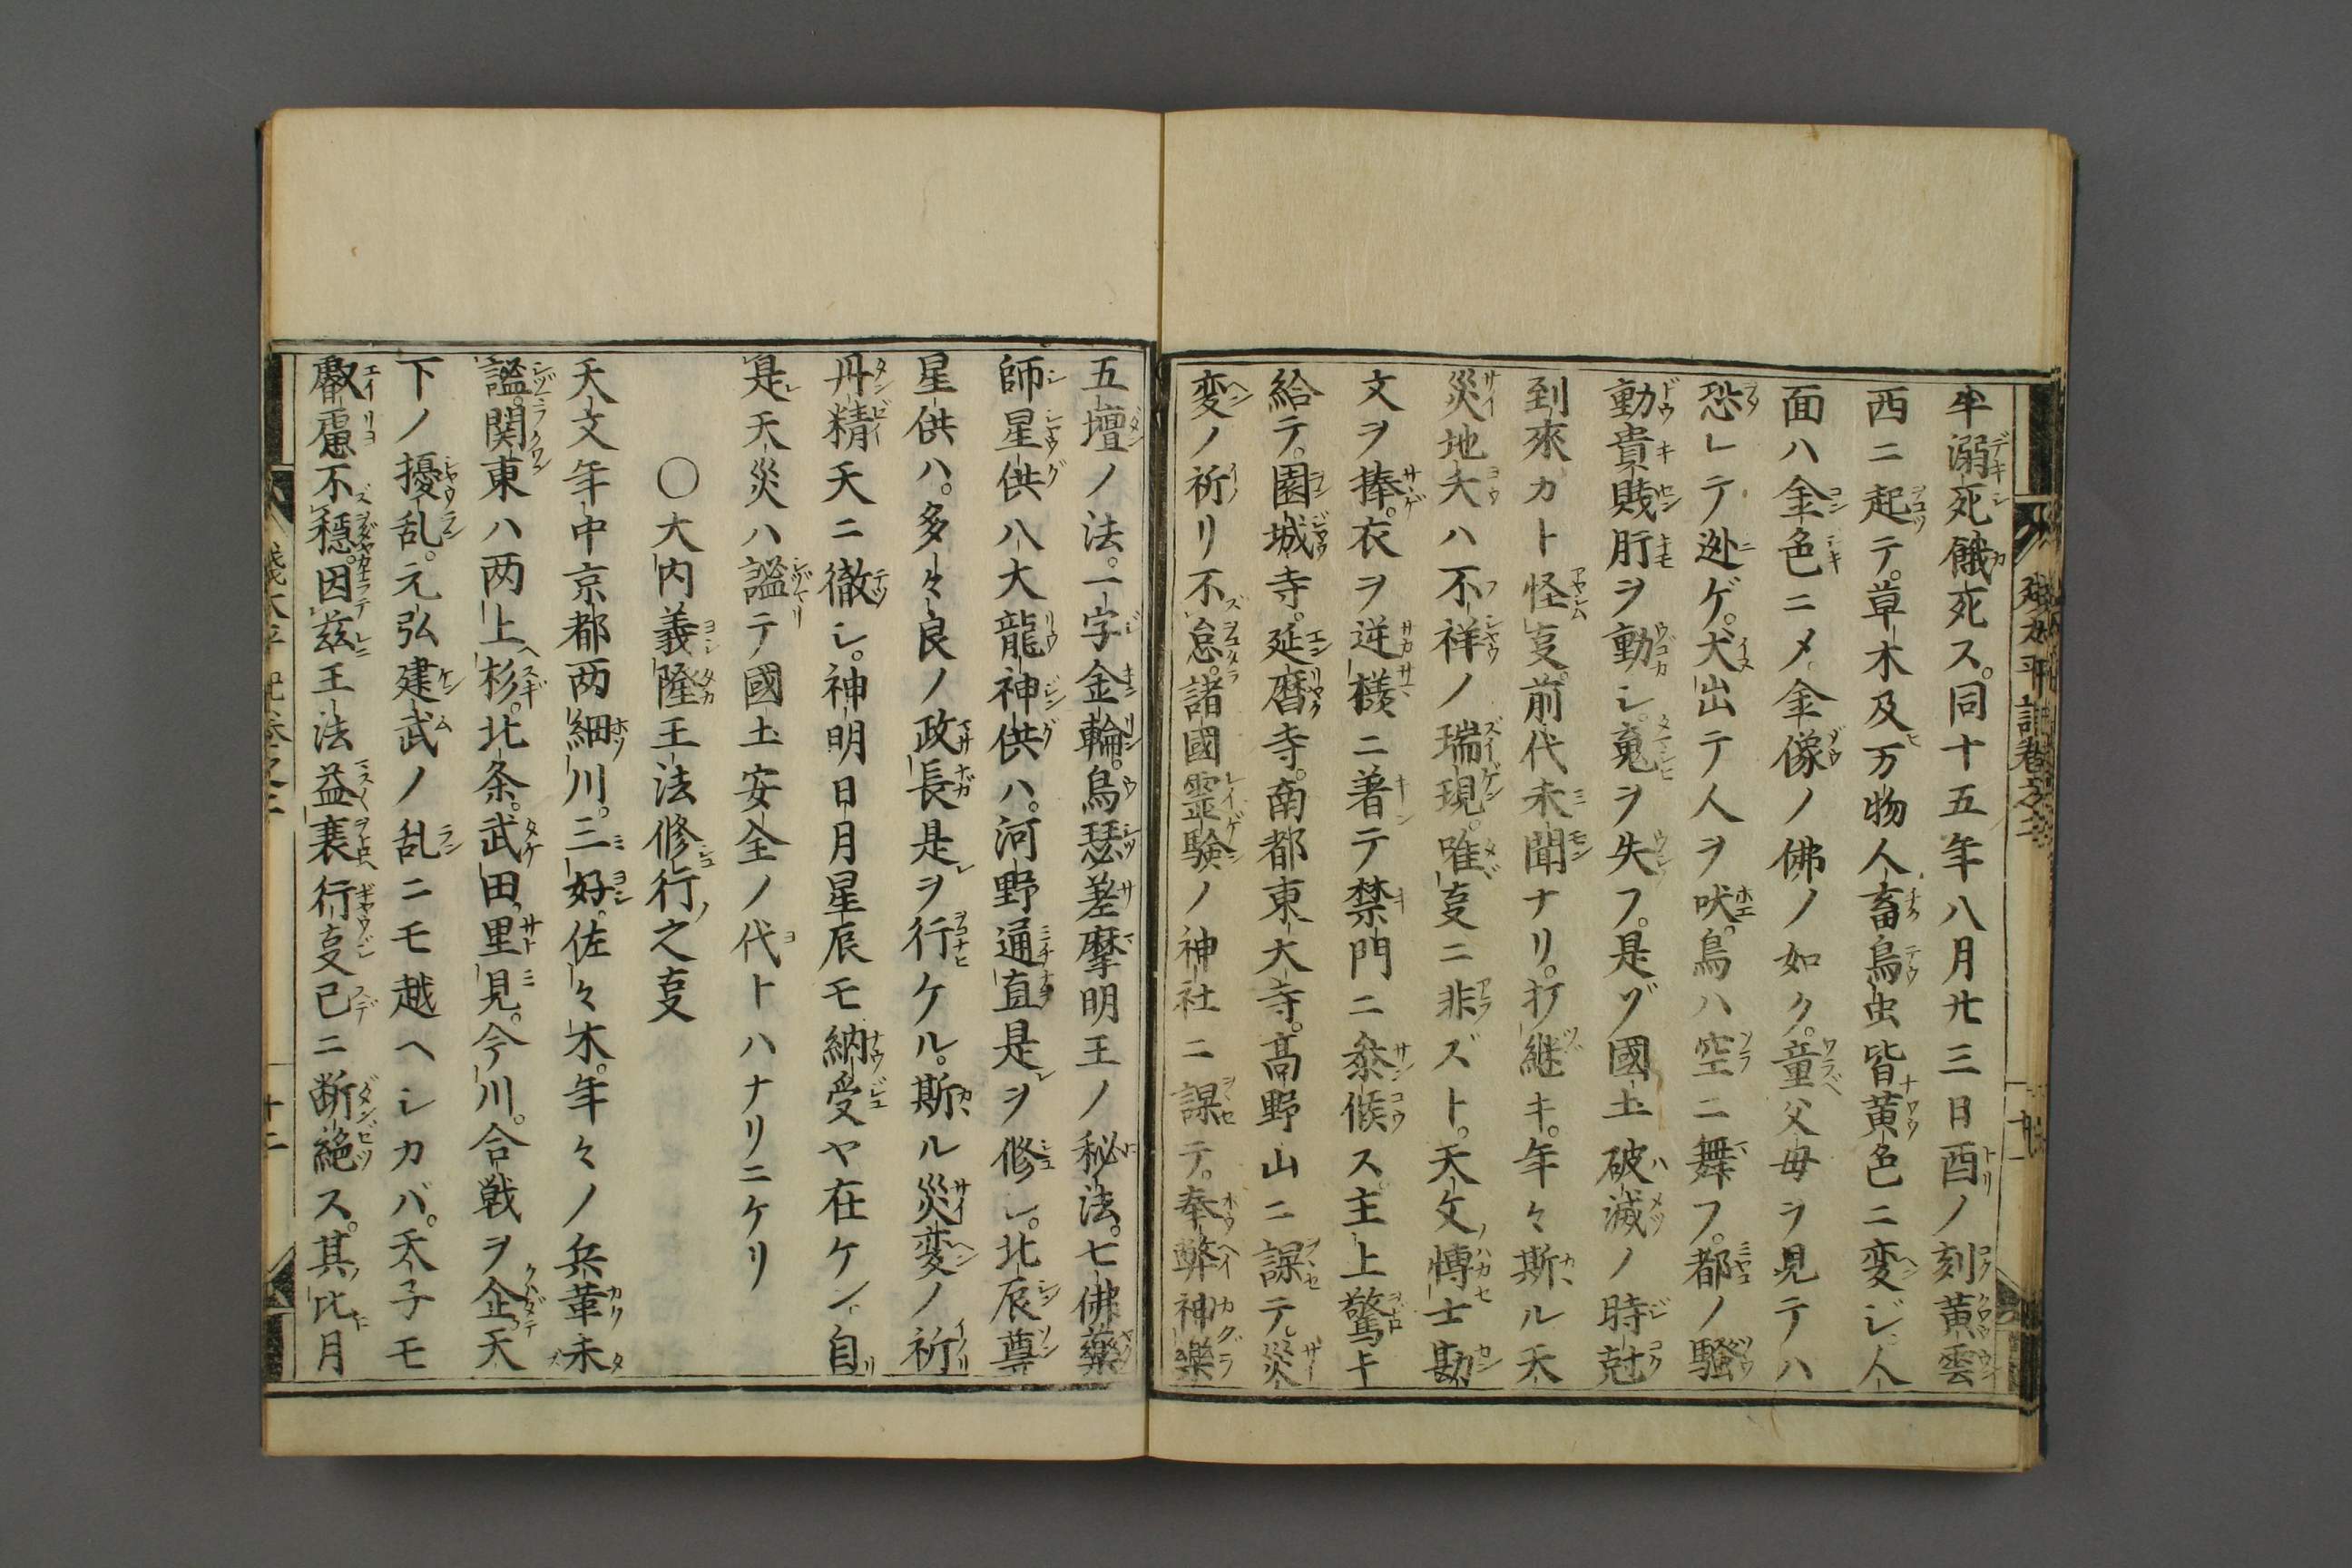 半溺死餓死ス。同十五年八月廿三日酉ノ刻黄雲
西ニ起テ。草木及万物人畜鳥虫皆黄色ニ変ジ。人
面ハ金色ニメ。金像ノ佛ノ如ク。童父母ヲ見テハ
恐レテ迯ゲ。犬出テ人ヲ吠。鳥ハ空ニ舞フ。都ノ騒
動貴賎肝ヲ動シ。䰟ヲ失フ。是ゾ國土破滅ノ時尅
到來カト怪叓。前代未聞ナリ。打継キ。年々斯ル天
災地夭ハ不祥ノ瑞現。唯叓ニ非ズト。天文博士勘
文ヲ捧。衣ヲ逆様ニ著テ禁門ニ叅候ス。主上驚キ
給テ。園城寺。延暦寺。南都東大寺。高野山ニ課テ。災
変ノ祈リ不怠。諸國霊験ノ神社ニ課テ。奉幣神樂
五壇ノ法。一字金輪。烏瑟差摩明王ノ秘法。七佛藥
師星供八大龍神供ハ。河野通直是ヲ修シ。北辰尊
星供ハ。多々良ノ政長是ヲ行ケル。斯ル災変ノ祈
丹精天ニ徹シ。神明日月星辰モ納受ヤ在ケン。自
是天災ハ謐テ國土安全ノ代トハナリニケリ
〇大内義隆王法修行之叓
天文年中京都两細川。三好。佐々木。年々ノ兵革未
謐。関東ハ两上杉。北条。武田。里見。今川。合戦ヲ企天
下ノ擾乱。元弘建武ノ乱ニモ越ヘシカバ。天子モ
叡慮不穏。因茲王法益衰行叓已ニ断絶ス。其比月